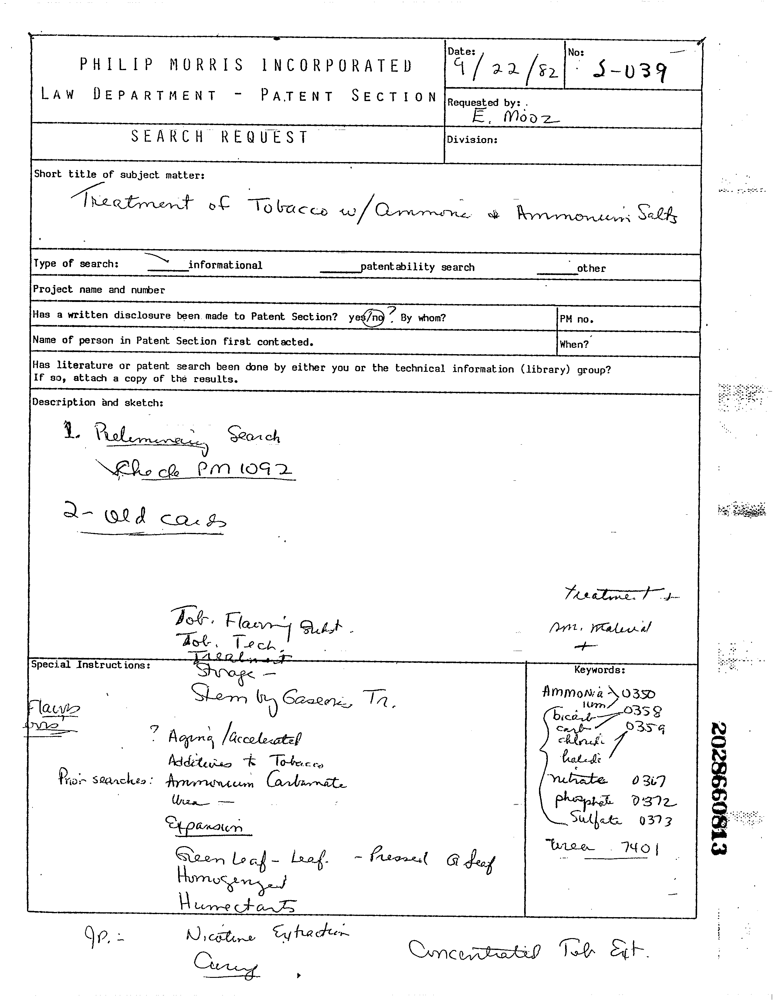 PHILIP MORRIS INCORPORATED
LAW DEPARTMENT - PATENT SECTION
SEARCH REQUEST
Date:
9/22/82
No:
S-039
Requested by:
E. Mooz
Division:
Short title of subject matter:
Treatment of Tobacco w/ Ammonia & Ammonium Salts
Type of search: informational patentability search other
Project name and number
Has a written disclosure been made to Patent Section? yes/no ? By whom?
PM no.
Name of person in Patent Section first contacted.
When?
Has literature or patent search been done by either you or the technical information (library) group?
If so, attach a copy of the results.
Description and sketch:
1. Preliminary Search
Check PM 1092
2- Old cards
Treatment +
sm. material
+
Tob. Flavring Subst.
Tob. Tech.
Treatment
Storage -
Stem by Gaseous Tr.
Special Instructions:
? Aging / accelerated
Additives to Tobacco
Prior searches: Ammonium Carbamate
Urea -
Expansion
Green Leaf - Leaf. - Pressed
Homogenized
Humectants
Keywords:
Ammonia 0350
ium
bicarb 0358
carb 0359
chloride
halide
nitrate 0367
phosphate 0372
Sulfate 0373
Urea 7401
Nicotine Extraction
Curing
Concentrated Tob Ext.
2028660813